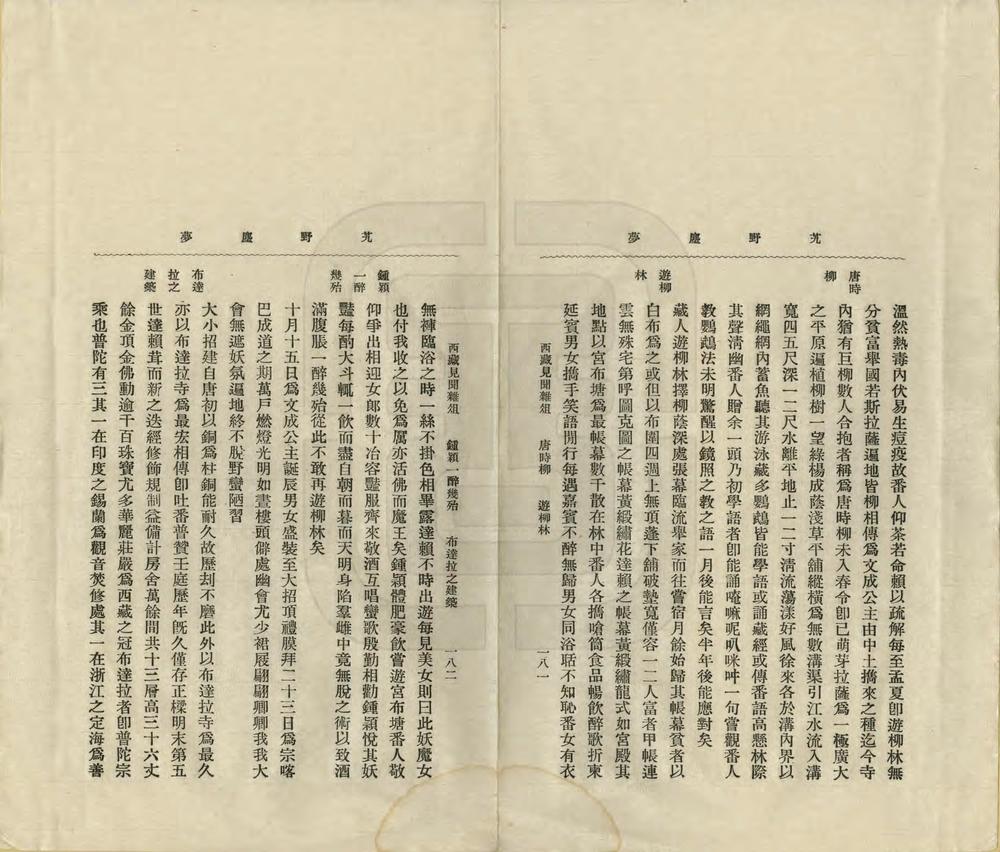 艽野塵夢
唐時柳
遊柳林
溫然熱毒內伏易生痘疫故番人仰茶若命賴以疏解每至孟夏卽遊柳林無
分貧富舉國若斯拉薩遍地皆柳相傳爲文成公主由中土攜來之種迄今寺
內猶有巨柳數人合抱者稱爲唐時柳未入春令卽已萌芽拉薩爲一極廣大
之平原遍植柳樹一望綠楊成蔭淺草平舖縱橫爲無數溝渠引江水流入溝
寬四五尺深一二尺水離平地止一二寸清流蕩漾好風徐來各於溝內界以
網繩網內蓄魚聽其游泳藏多鸚鵡皆能學語或誦藏經或傳番語高懸林際
其聲清幽番人贈余一頭乃初學語者卽能誦唵嘛呢叭咪吽一句嘗觀番人
敎鸚鵡法未明驚醒以鏡照之敎之語一月後能言矣半年後能應對矣
藏人遊柳林擇柳蔭深處張幕臨流舉家而往嘗宿月餘始歸其帳幕貧者以
白布爲之或但以布圍四週上無頂蓬下舖破墊寬僅容一二人富者甲帳連
雲無殊宅第呼圖克圖之帳幕黃緞繡花達賴之帳幕黃緞繡龍式如宮殿其
地點以宮布塘爲最帳幕數千散在林中番人各攜嗆筒食品暢飲醉歌折柬
延賓男女攜手笑語閒行每遇嘉賓不醉無歸男女同浴聒不知恥番女有衣
西藏見聞雜俎　唐時柳　遊柳林
一八一
艽野塵夢
鍾穎一醉幾殆
布達拉之建築
西藏見聞雜俎　鍾穎一醉幾殆　布達拉之建築
一八二
無褲臨浴之時一絲不掛色相畢露達賴不時出遊每見美女則曰此妖魔女
也付我收之以免爲厲亦活佛而魔王矣鍾穎體肥豪飲嘗遊宮布塘番人敬
仰爭出相迎女郎數十冶容豔服齊來敬酒互唱蠻歌殷勤相勸鍾穎悅其妖
豔每酌大斗輒一飲而盡自朝而暮而天明身陷羣雌中竟無脫之術以致酒
滿腹脹一醉幾殆從此不敢再遊柳林矣
十月十五日爲文成公主誕辰男女盛裝至大招頂禮膜拜二十三日爲宗喀
巴成道之期萬戶燃燈光明如晝樓頭僻處幽會尤少裙屐翩翩卿卿我我大
會無遮妖氛遍地終不脫野蠻陋習
大小招建自唐初以銅爲柱銅能耐久故歷刦不磨此外以布達拉寺爲最久
亦以布達拉寺爲最宏相傳卽吐番普贊王庭歷年旣久僅存正樑明末第五
世達賴葺而新之迭經修飾規制益備計房舍萬餘間共十三層高三十六丈
餘金頂金佛動逾千百珠寶尤多華麗莊嚴爲西藏之冠布達拉者卽普陀宗
乘也普陀有三其一在印度之錫蘭爲觀音焚修處其一在浙江之定海爲善